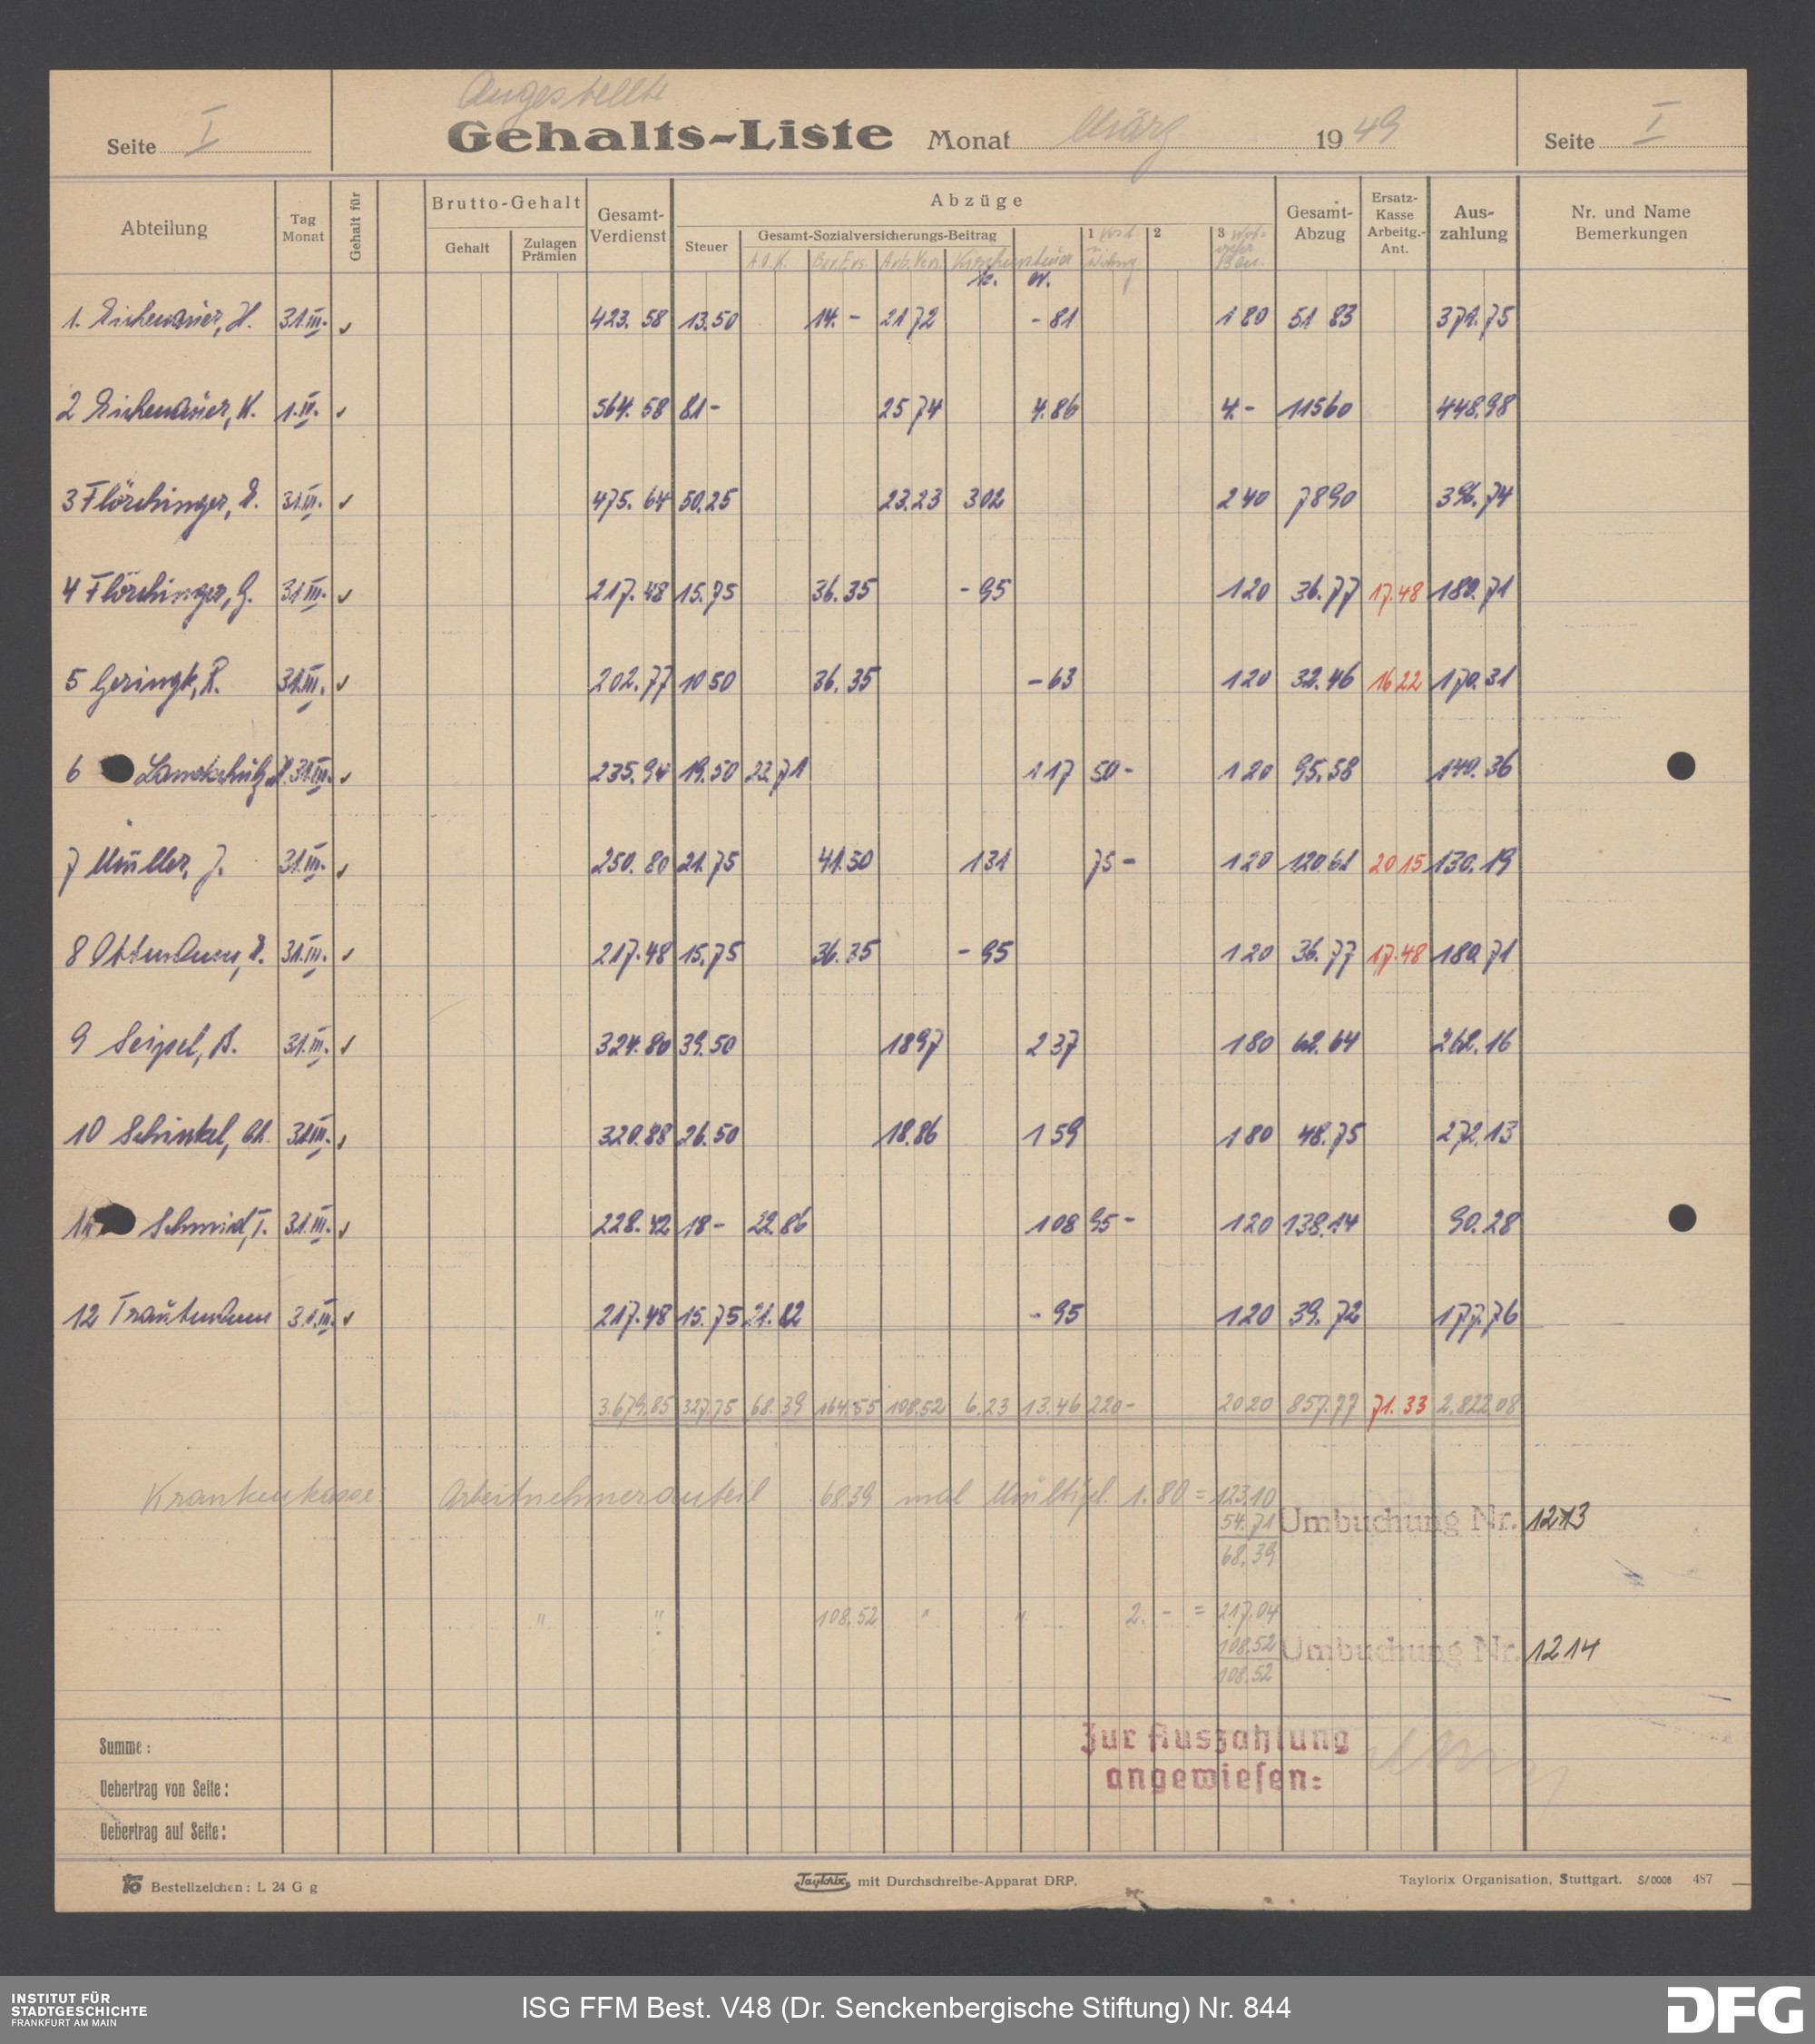 Angestellte
Seite I Gehalts-Liste Monat März 1949 Seite I
Abteilung Tag Monat Gehalt für Brutto-Gehalt Gesamt-Verdienst Abzüge Gesamt-Abzug Ersatz-Kasse Arbeitg.-Ant. Aus-zahlung Nr. und Name Bemerkungen
Gehalt Zulagen Prämien Steuer Gesamt-Sozialversicherungs-Beitrag 1 Kost u. Wohng 2 3
A.O.K. Bar.Ers. Arb.Vers. Kirchensteuer
k. ev.
1. Eichenauer, H. 31.III. ✓ 423.58 13.50 14.- 21 72 -81 1 80 51 83 371.75
2 Eichenauer, K. 1.IV. ✓ 564.58 81- 25 74 4.86 4.- 115 60 448.98
3 Flörchinger, E. 31.III. ✓ 475.64 50.25 23.23 3 02 2 40 78 90 396.74
4 Flörchinger, G. 31.III. ✓ 217.48 15.75 36.35 -95 1 20 36.77 17.48 180.71
5 Geringk, R. 31.III. ✓ 202.77 10 50 36.35 -63 1 20 32.46 16 22 170.31
6 31.III. ✓ 235.94 19.50 23.71 1 17 50- 1 20 95.58 140.36
7 Müller, J. 31.III. ✓ 250.80 21.75 41.50 1 31 75- 1 20 120 61 20 15 130.19
8 Ottmann, E. 31.III. ✓ 217.48 15.75 36.35 -95 1 20 36.77 17.48 180.71
9 Seipel, B. 31.III. ✓ 324.80 39.50 18 97 2 37 1 80 62.64 262.16
10 Schinkel, Ch. 31.III. ✓ 320.88 26.50 18.86 1 59 1 80 48.75 272.13
11 Schmid, T. 31.III. ✓ 228.42 18- 22.86 1 08 95- 1 20 138.14 90.28
12 Trautmann 31.III. ✓ 217.48 15.75 21.82 -95 1 20 39.72 177.76
3.679.85 327.75 68.39 164.55 108.52 6.23 13.46 220- 20 20 857.77 71.33 2.822 08
Krankenkasse: Arbeitnehmeranteil 68.39 mal Multipl. 1.80 = 123.10
54.71 Umbuchung Nr. 1213
68.39
" " 108.52 " " 2.- = 217.04
108.52 Umbuchung Nr. 1214
108.52
Zur Auszahlung
angewiesen:
Summe:
Uebertrag von Seite:
Uebertrag auf Seite:
Bestellzeichen: L 24 G g Taylorix mit Durchschreibe-Apparat DRP. Taylorix Organisation, Stuttgart. S/0008 487
INSTITUT FÜR
STADTGESCHICHTE
FRANKFURT AM MAIN
ISG FFM Best. V48 (Dr. Senckenbergische Stiftung) Nr. 844
DFG